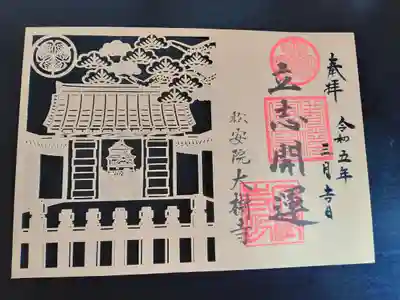 奉拝
令和五年
三月吉日
立志開運
松安院
大樹寺